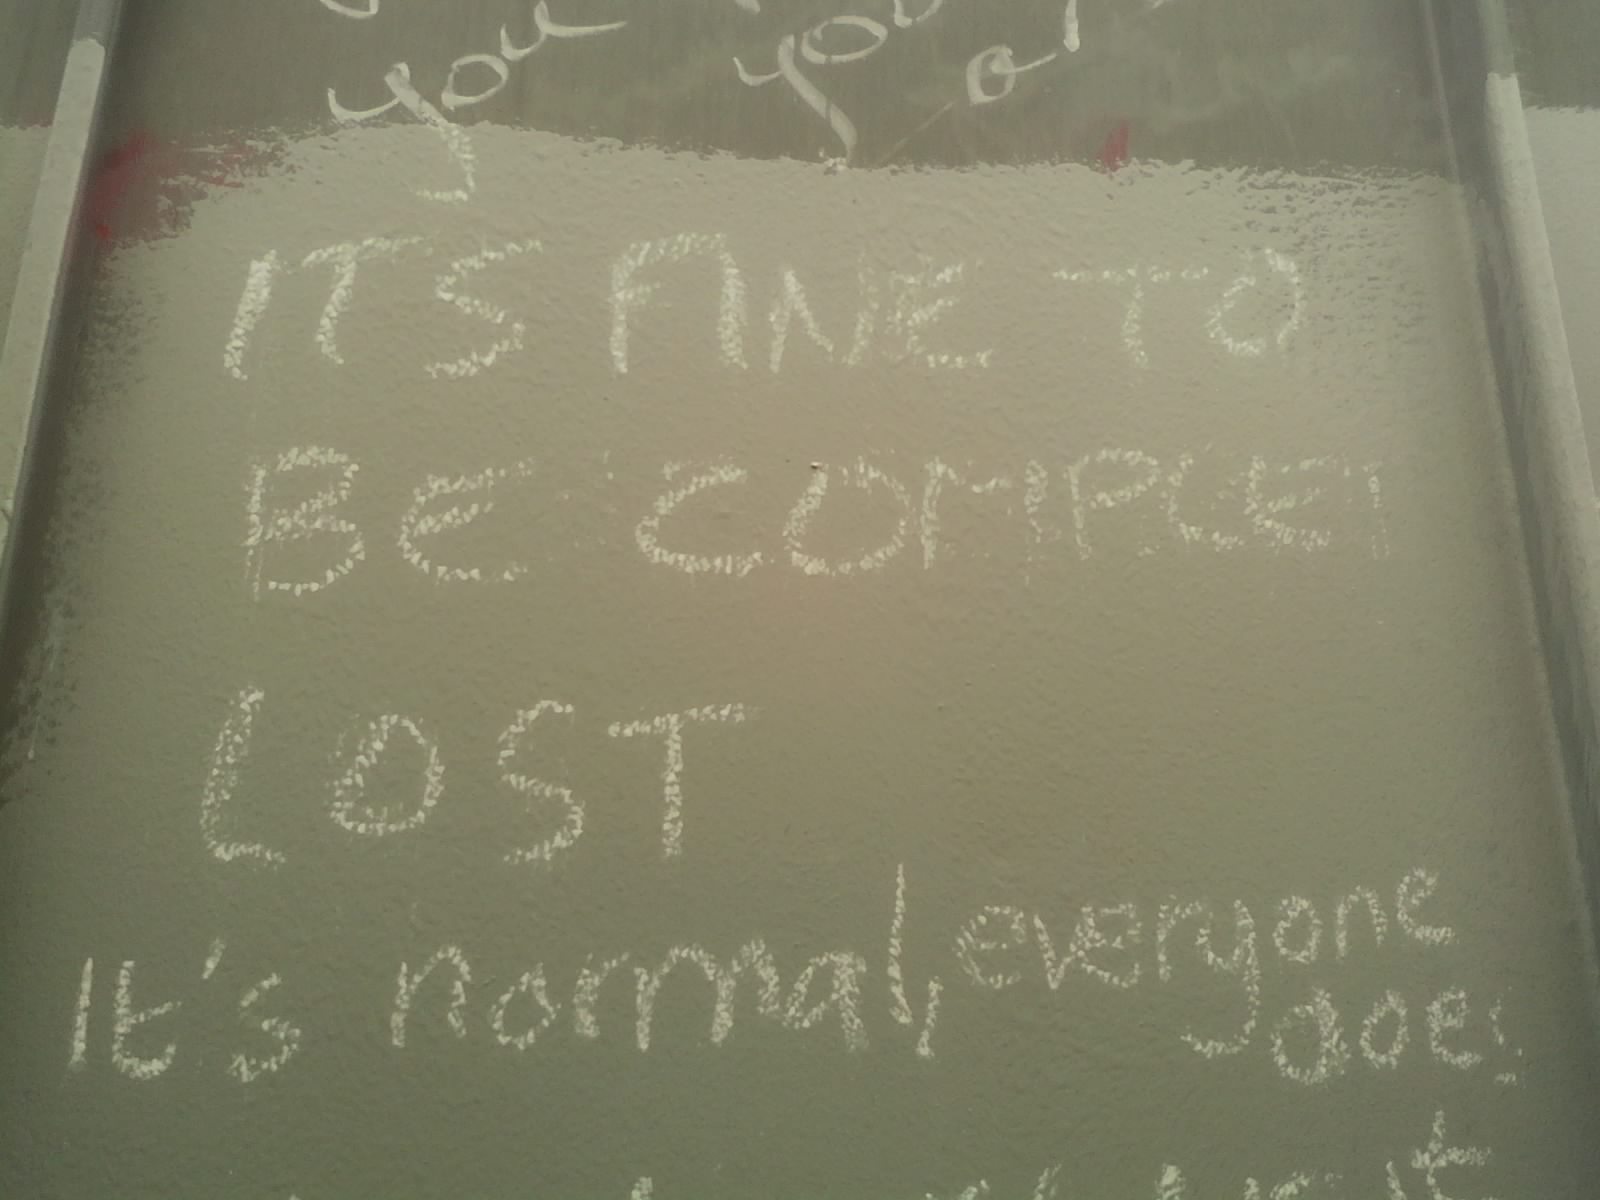 you you
ITS FINE TO
BE COMPLET
LOST
It's normal, everyone
does